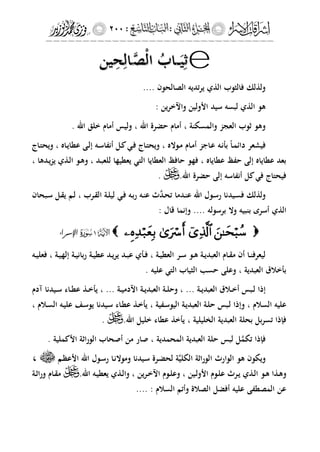 ثِيَابُ الصَّالِحِين
ولذلك فالثوب الذي يرتديه الصالحون ....
هو الذي لبسه سيد الأولين والآخرين :
وهو ثوب العجز والمسكنة ، أمام حضرة الله ، وليس أمام خلق الله .
فيشعر دائماً بأنه عاجز أمام مولاه ، ويحتاج في كل أنفاسه إلى عطاياه ، ويحتاج
بعد عطاياه إلى حفظ عطاياه ، فهو حافظ العطايا التي يعطيها للعبد ، وهو الذي يزيدها ،
فيحتاج في كل أنفاسه إلى حضرة الله .
ولذلك فسيدنا رسول الله عندما تحدَّث عنه ربه في ليلة القرب ، لم يقل سبحان
الذي أسرى بنبيه ولا برسوله .... وإنما قال :
﴿ سُبْحَـٰنَ ٱلَّذِىٓ أَسْرَىٰ بِعَبْدِهِۦ ﴾ الإسراء
ليعرفنا أن مقام العبدية هو سر العطية ، فأي عبد يريد عطية ربانية إلهية ، فعليه
بأخلاق العبدية ، وعلى حسب الثياب التي عليه .
إذا لبس أخلاق العبدية ... ، وحلة العبدية الآدمية ... ، يأخذ عطاء سيدنا آدم
عليه السلام ، وإذا لبس حلة العبدية اليوسفية ، يأخذ عطاء سيدنا يوسف عليه السلام ،
فإذا تسربل بحلة العبدية الخليلية ، يأخذ عطاء خليل الله .
فإذا تكمَّل لبس حلة العبدية المحمدية ، صار من أصحاب الوراثة الأكملية .
ويكون هو الوارث الوراثة الكليَّة لحضرة سيدنا ومولانا رسول الله الأعظم ﷺ ،
وهذا هو الذي يرث علوم الأولين ، وعلوم الآخرين ، والذي يعطيه الله مقام وراثة
عن المصطفى عليه أفضل الصلاة وأتم السلام : ....